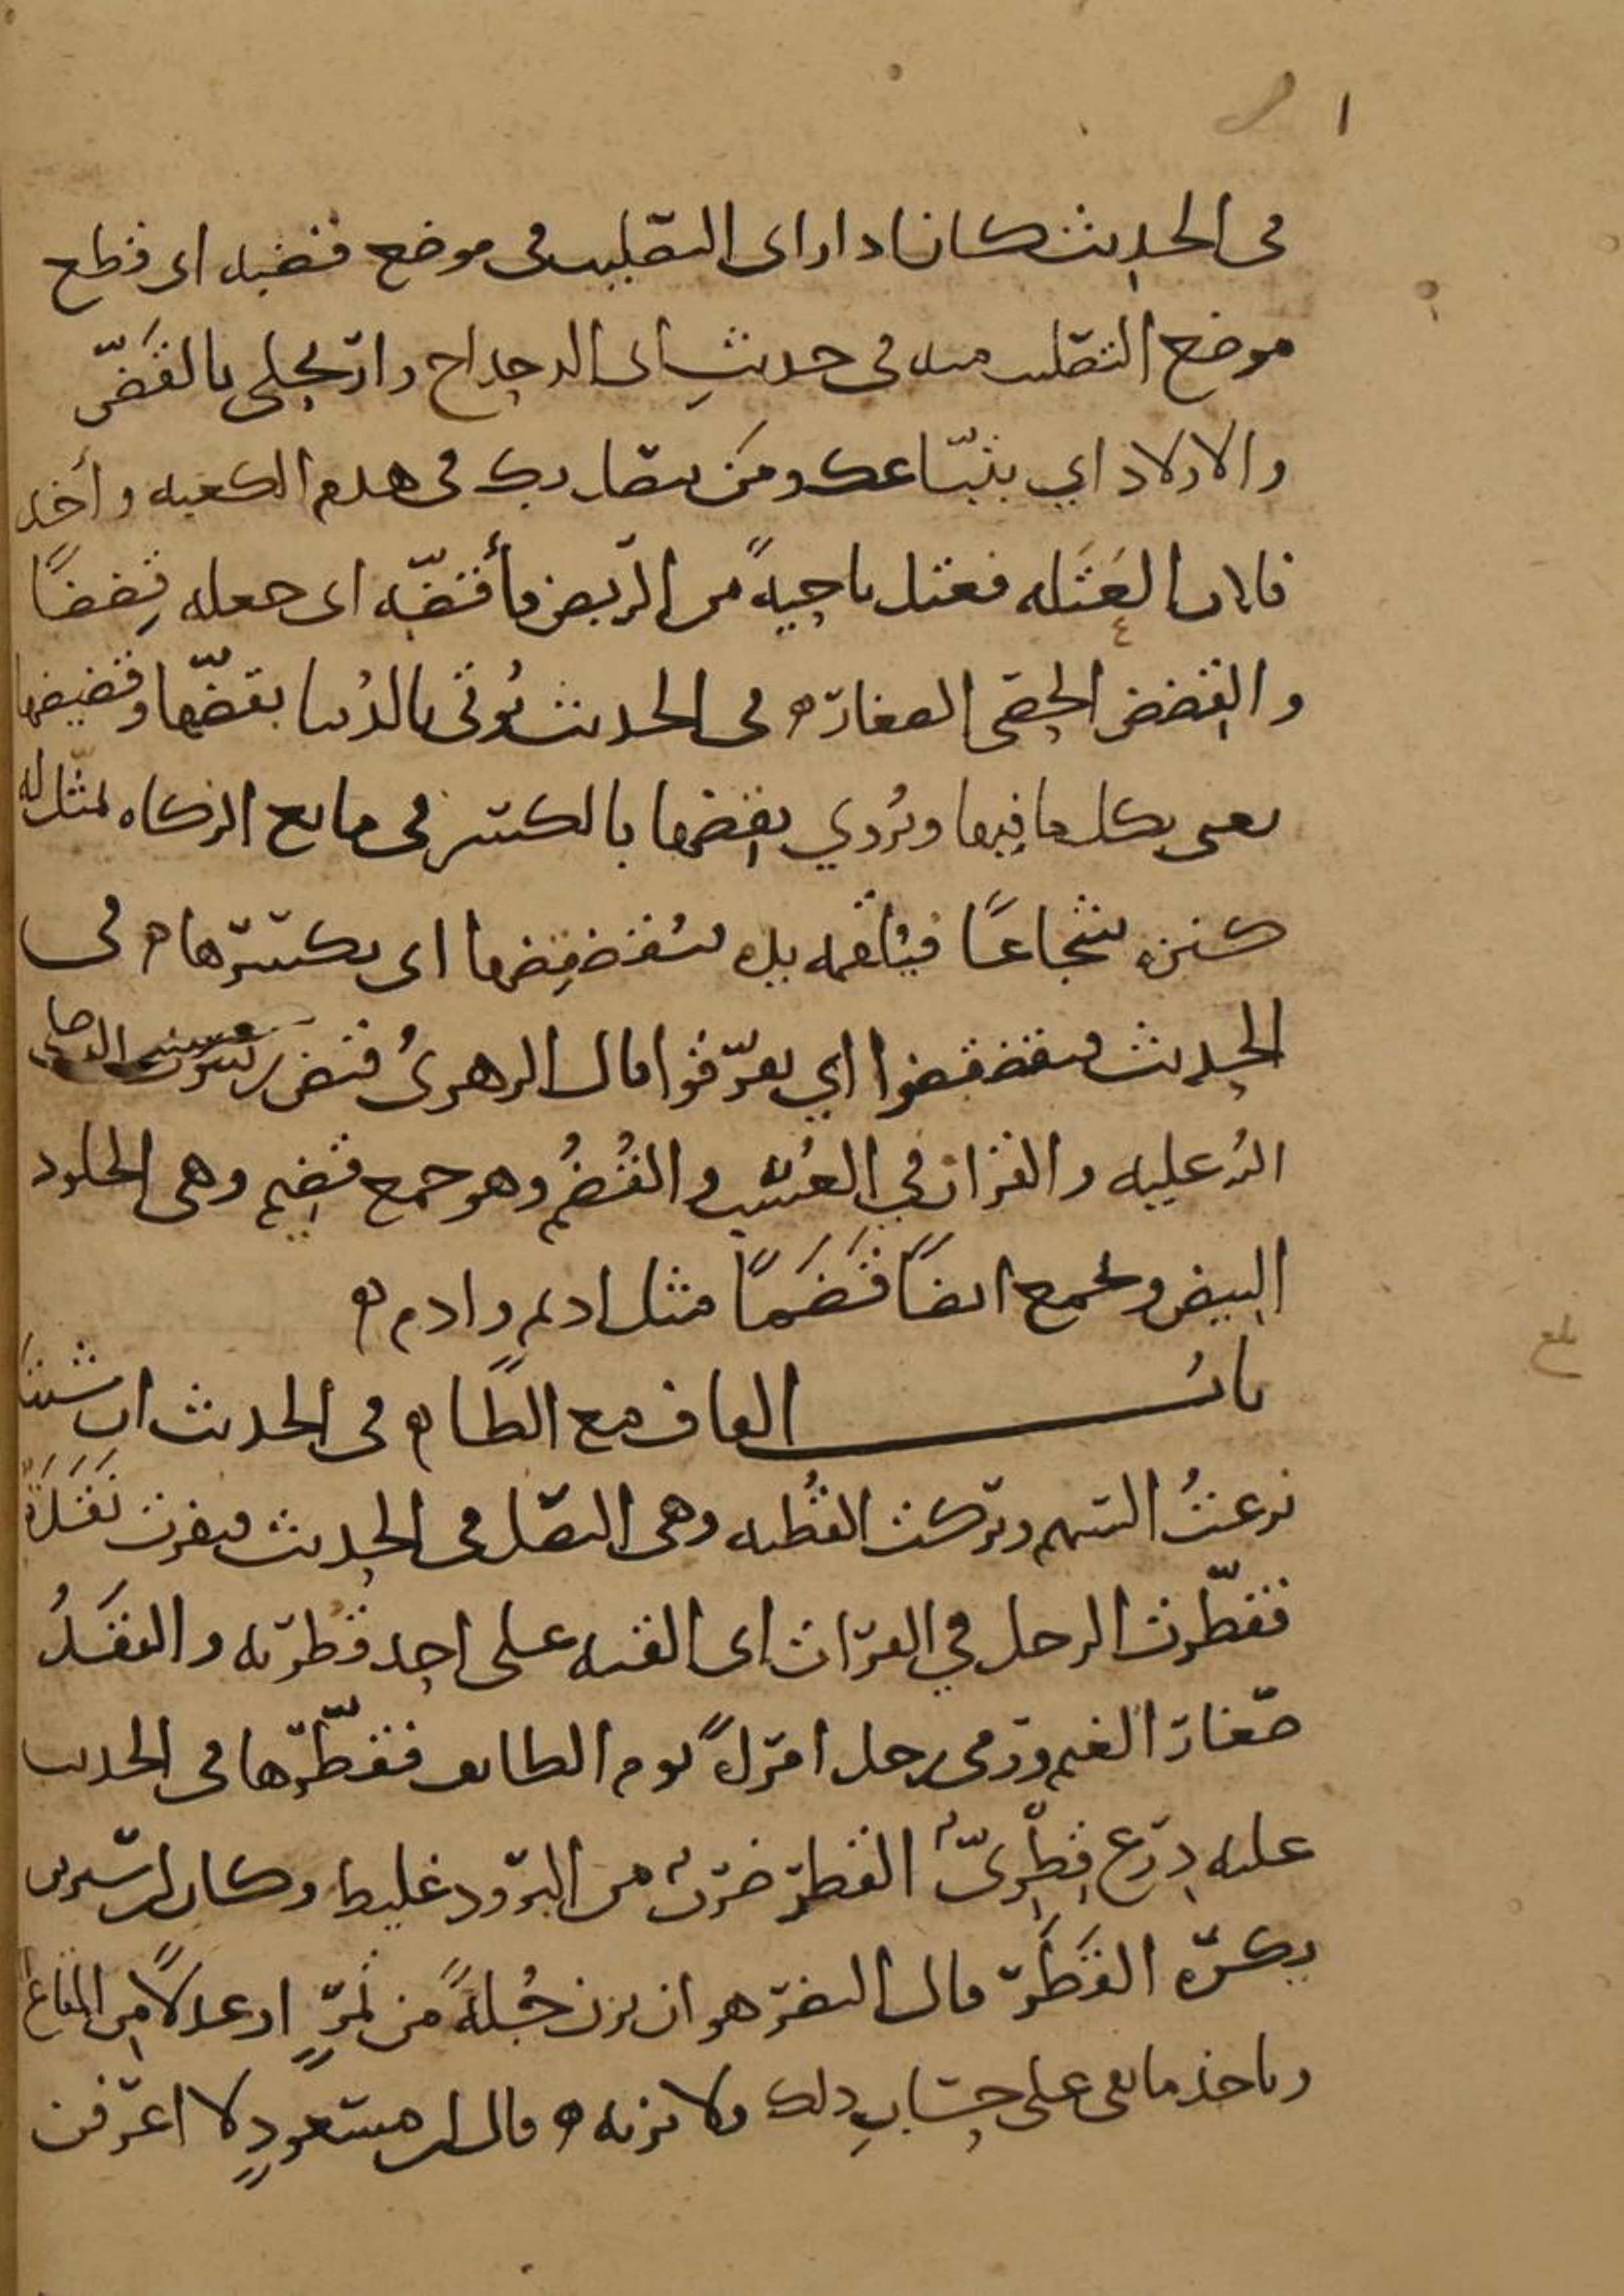 ١
في الحديث كان اذا راى التصليب في موضع قضبه اى قطع
موضع التصليب منه في حديث ابى الدحداح وارتحلي بالقَضّ
والاولاد اي بتبّاعك ومَن يتصل بك في هدم الكعبه وأخذ
فلان العَتَله فعتل ناحيةً من الرّبض فأقضّه اى جعله قِضضًا
والقِضض الحصى الصغار في الحديث يُوتَى بالدُنيا بقضّها وقضيضها
يعنى بكل ما فيها ويُروي بقِضها بالكسر في مانع الزكاه يمثّل له
كنزه شجاعًا فيُلقمه يده فيُقضقِضها اى يكسّرها في
الحديث فتقضقضوا اي تفرّقوا قال الزهرىُ قُبض رسول الله صلى
الله عليه والقران في العُسُب والقُضُم وهو جمع قضيم وهى الجلود
البيض وتجمع ايضًا قَضَمًا مثل اديم وادم
بابُ القاف مع الطا في الحديث ان شئت
نزعتُ السهم وتركت القُطبه وهى النصل في الحديث فنفرت نَقَدَةٌ
فقطّرت الرجل في الفرات اى القته على احد قطريه والنقَدُ
صغار الغنم ورمى رجل امرأةً يوم الطايف فقطّرها في الحديث
عليه درع قِطْرىٌّ القطر ضربٌ من البرود غليظ وكان ابن سيرين
يكره القَطَر قال النضر هو ان يزن جُلةً من تمرٍ او عدلًا من المتاع
وياخذ ما بقى على حسابِ ذلك ولا يزنه قال ابن مسعودٍ لا اعرفن
بلغ